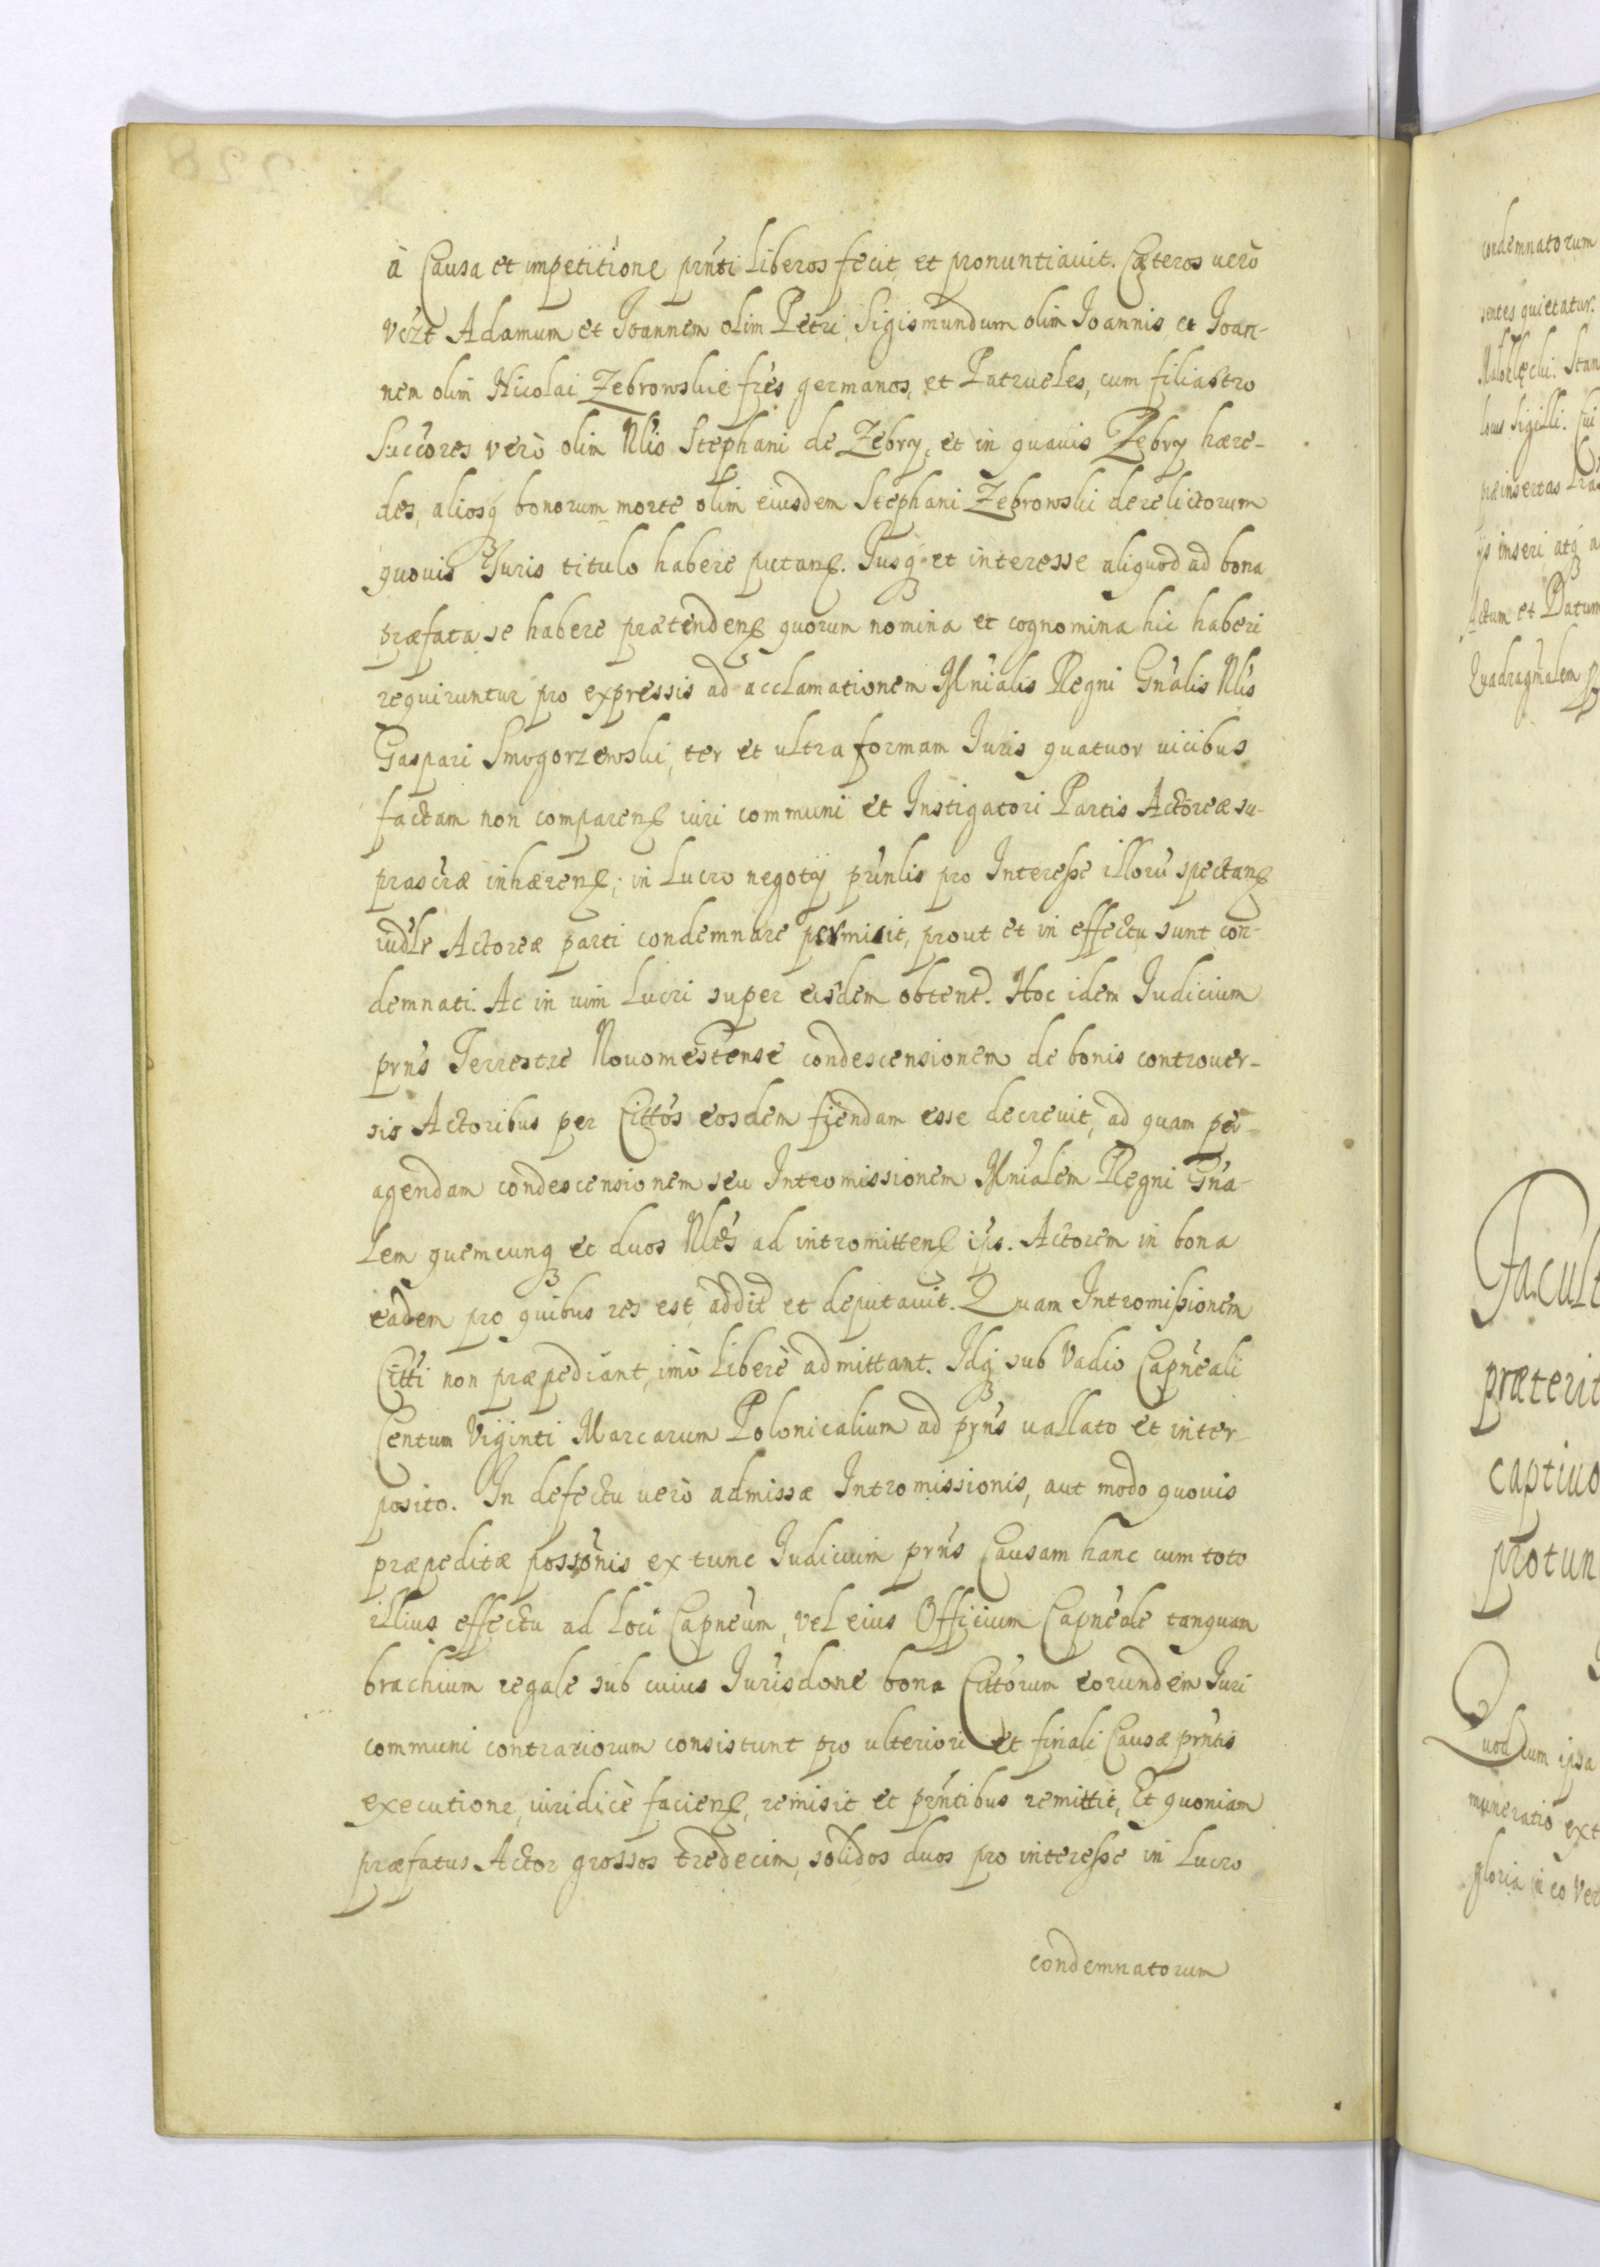 à Causa et impetitione prńti liberos fecit, et pronuntiauit. Cæteros uerò
vézt Adamum et Joannem olim Petri, Sigismundum olim Joannis, et Joan-
nem olim Nicolai Zebrowskie frés germanos, et Patrueles, cum filiastro
Succores verò olim Nlis Stephani de Zebry, et in quauis Zebry hære-
des, aliosq bonorum morte olim eiusdem Stephani Zebrowski derelictorum
quouis Juris titulo habere putanȩ. Jusq et interesse aliquod ad bona
præfata se habere prætendenȩ quorum nomina et cognomina hic haberi
requiruntur pro expressis ad acclamationem Mńialis Regni Gńalis Nlis
Gaspari Smogorzewski, ter et ultra formam Juris quatuor uicibus
factam non comparenȩ iuri communi et Instigatori Partis Actoreæ su-
prascræ inhærenȩ; in Lucro negotij prńlis pro Interesse illorū spectanȩ
iudłe Actoreæ parti condemnare permisit, prout et in effectu sunt con-
demnati. Ac in uim Lucri super eisdem obtent. Hoc idem Judicium
prńs Terrestre Nouomestense condescensionem de bonis controuer-
sis Actoribus per Cittos eosdem fiendam esse decreuit, ad quam per-
agendam condescensionem seu Intromissionem Mńialem Regni Gńa-
lem quemcunq et duos Nles ad intromittenȩ ips. Actorem in bona
eadem pro quibus res est, addit et deputauit. Quam Intromissionem
Citti non præpediant, imò liberè admittant. Idq sub Vadio Capńeali
Centum Viginti Marcarum Polonicalium ad prńs uallato et inter-
posito. In defectu uerò admissæ Intromissionis, aut modo quouis
præpeditæ possonis ex tunc Judicium prńs Causam hanc cum toto
illius effectu ad loci Capńeum, vel eius Officium Capńeale tanquam
brachium regale sub cuius Jurisdone bona Cittorum eorundem Juri
communi contrariorum consistunt pro ulteriori et finali Causæ prńtis
executione, iuridicè facienȩ, remisit et prńtibus remittit, Et quoniam
præfatus Actor grossos tredecim, solidos duos pro interesse in Lucro
condemnatorum
condemnatorum
sentes quietatur.
locus Sigilli. Cui
præinsertas
ijs inseri atq a
Actum et Datum
Quadragmalem
Facult
præterit
captiuo
protun
Quod cum ipsa
muneratio ext
gloria in eo ver